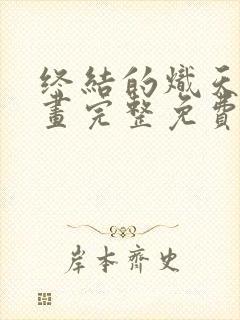 终結的熾天
畫完整免費
岸本齊史